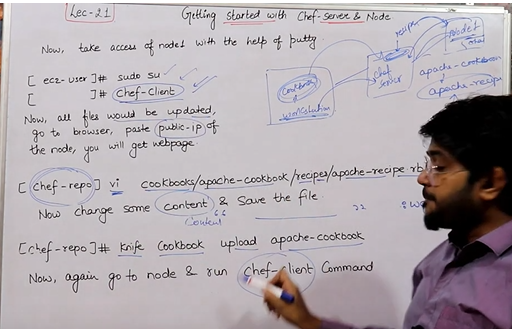 Lec-21
Getting started with Chef-server & Node
Now, take access of node1 with the help of putty
[ ec2-user ]# sudo su
[ ]# Chef-Client
Now, all files would be updated,
go to browser, paste public-ip of
the node, you will get webpage.
recipe
Node1
Cookbook
workstation
chef
server
apache-cookbook
apache-recipe
[ chef-repo ] vi cookbooks/apache-cookbook/recipes/apache-recipe.rb
Now change some content & Save the file.
Content
[chef-repo]# knife Cookbook upload apache-cookbook
Now, again go to node & run Chef-client Command